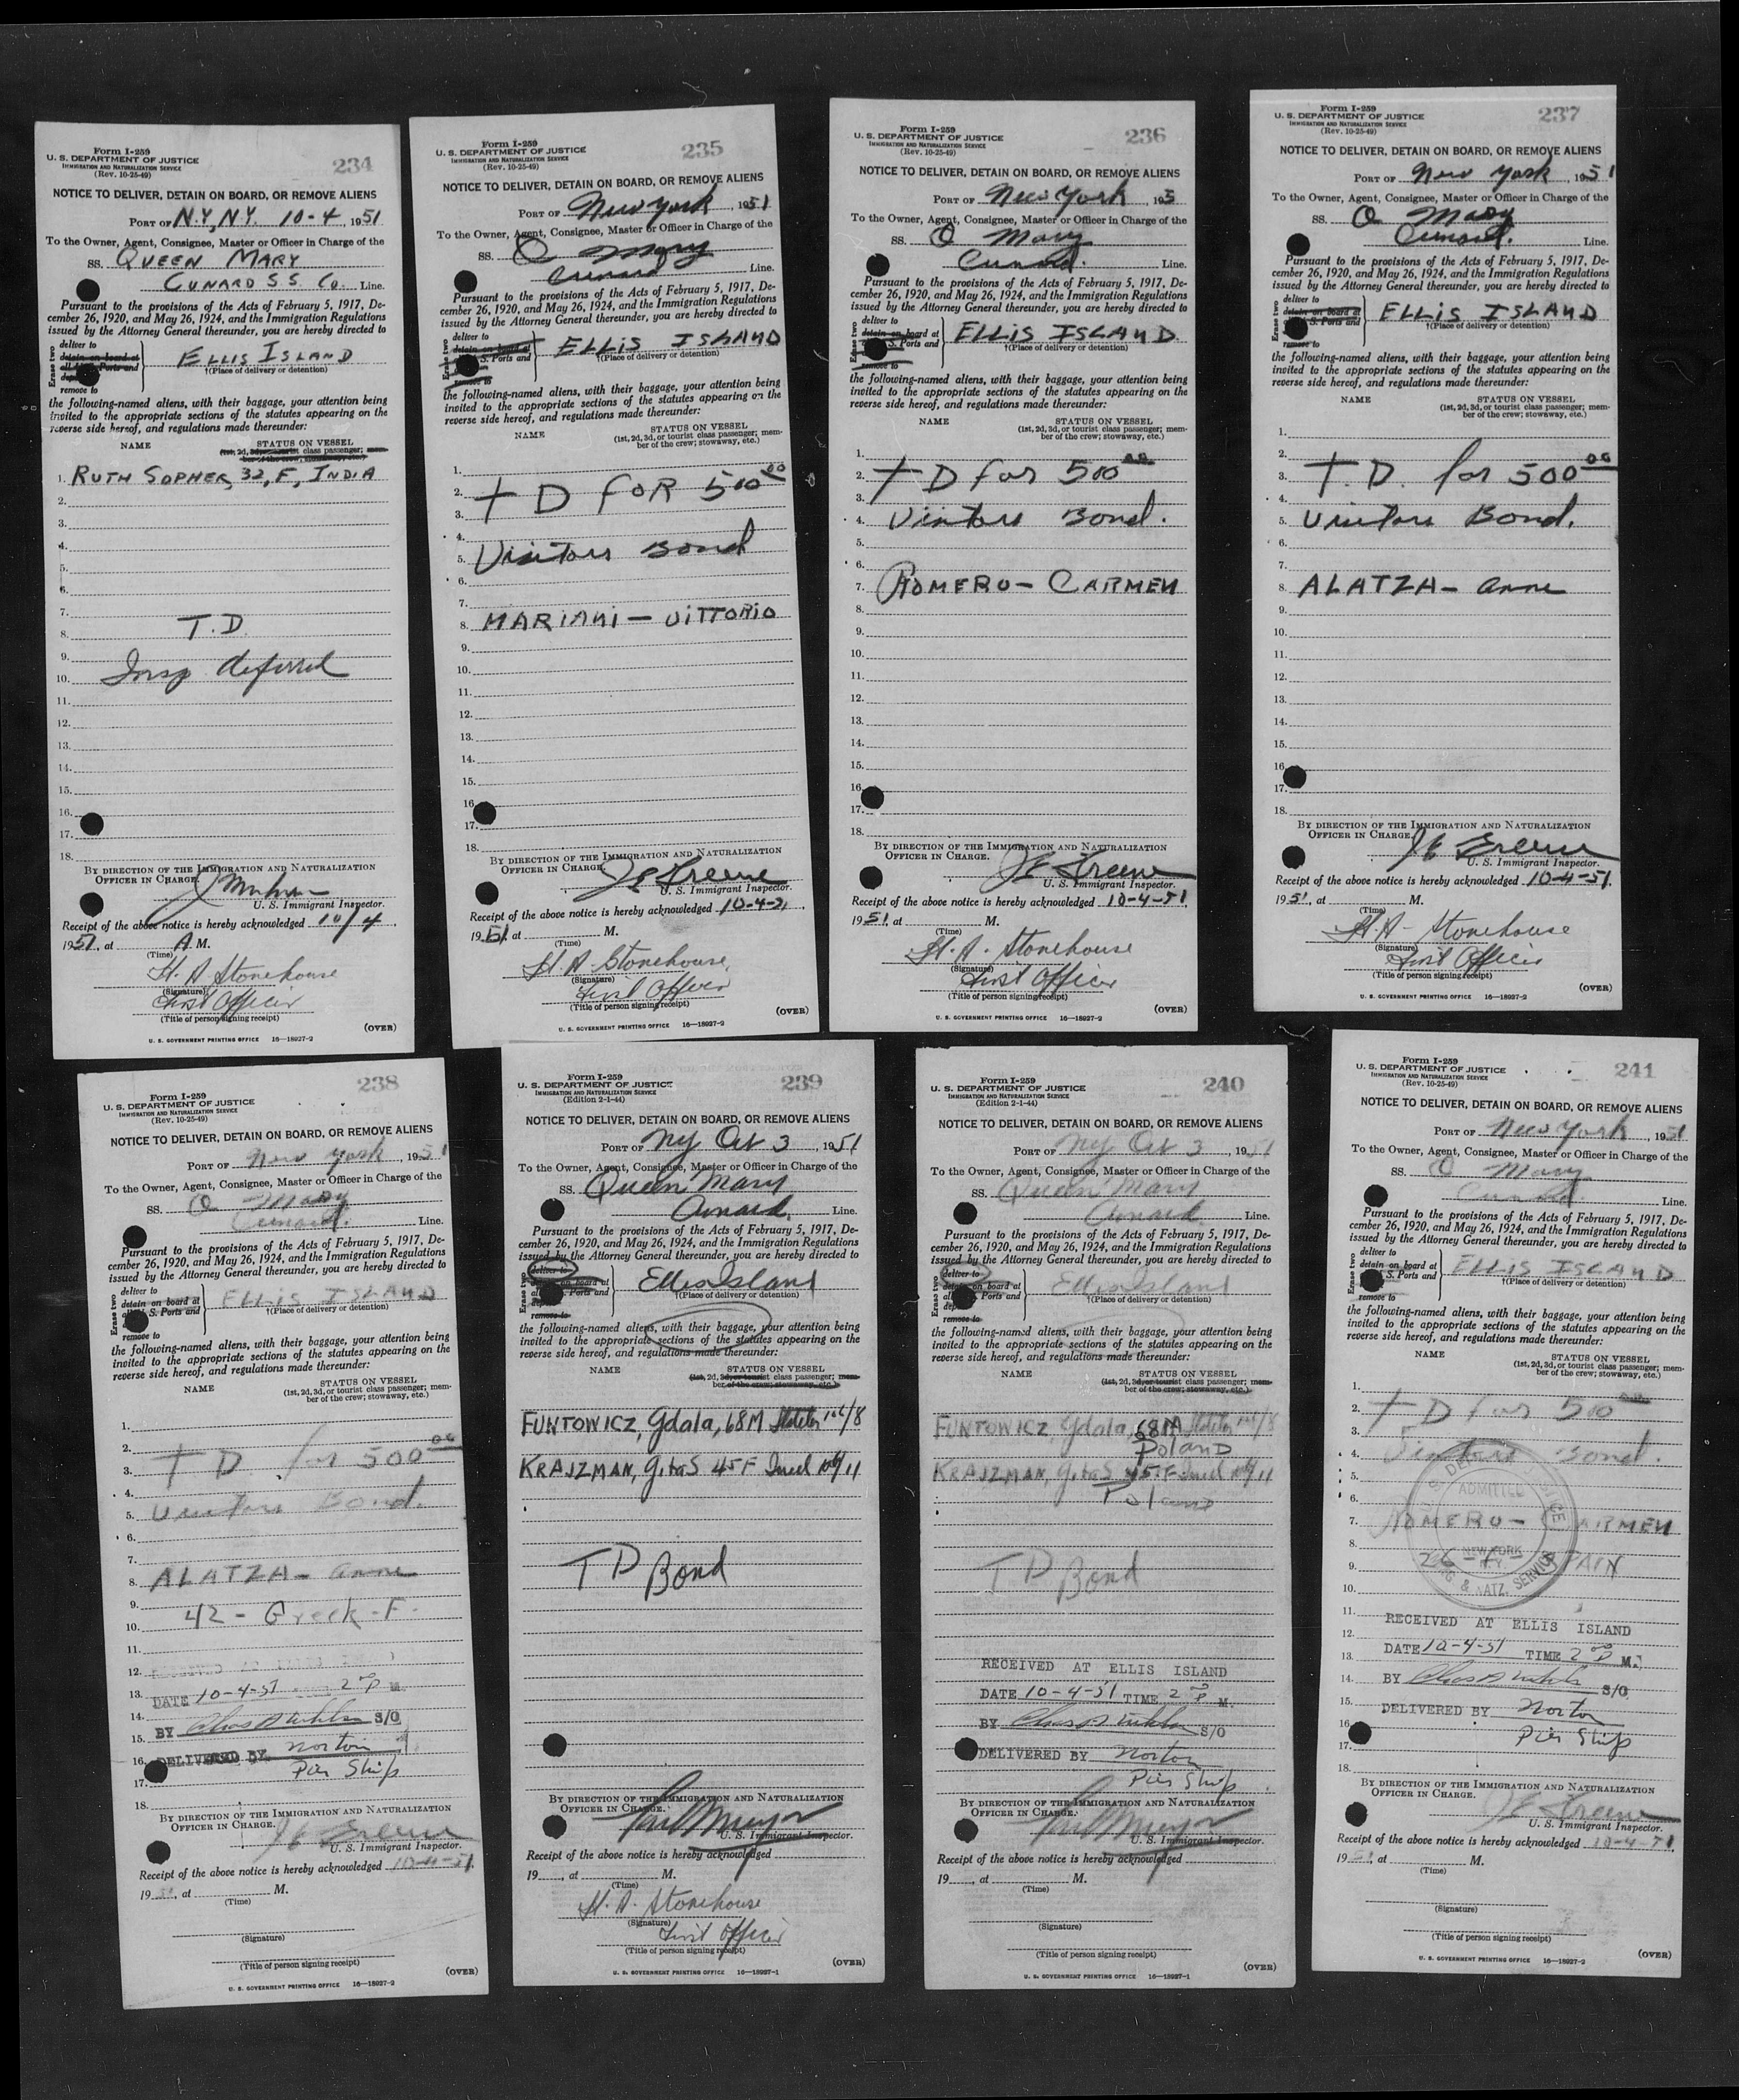 Form I-259
234
U. S. DEPARTMENT OF JUSTICE
IMMIGRATION AND NATURALIZATION SERVICE
(Rev. 10-25-49)
NOTICE TO DELIVER, DETAIN ON BOARD, OR REMOVE ALIENS
PORT OF N.Y., N.Y. 10-4, 1951
To the Owner, Agent, Consignee, Master or Officer in Charge of the
SS. QUEEN MARY
CUNARD S.S. Co. Line.
Pursuant to the provisions of the Acts of February 5, 1917, De-
cember 26, 1920, and May 26, 1924, and the Immigration Regulations
issued by the Attorney General thereunder, you are hereby directed to
Erase two
deliver to
detain on board at
all Ports and
remove to
ELLIS ISLAND
†(Place of delivery or detention)
the following-named aliens, with their baggage, your attention being
invited to the appropriate sections of the statutes appearing on the
reverse side hereof, and regulations made thereunder:
NAME STATUS ON VESSEL
(1st, 2d, 3d, or tourist class passenger; mem-
ber of the crew; stowaway, etc.)
1. RUTH SOPHER, 32, F, INDIA
2.
3.
4.
5.
6.
7.
8. T.D.
9.
10. Insp deferred
11.
12.
13.
14.
15.
16.
17.
18.
BY DIRECTION OF THE IMMIGRATION AND NATURALIZATION
OFFICER IN CHARGE.
U. S. Immigrant Inspector.
Receipt of the above notice is hereby acknowledged 10/4,
1951, at A M.
(Time)
H. A. Stonehouse
(Signature)
First Officer
(Title of person signing receipt)
(OVER)
U. S. GOVERNMENT PRINTING OFFICE 16—18927-2
Form I-259
235
U. S. DEPARTMENT OF JUSTICE
IMMIGRATION AND NATURALIZATION SERVICE
(Rev. 10-25-49)
NOTICE TO DELIVER, DETAIN ON BOARD, OR REMOVE ALIENS
PORT OF New York, 1951
To the Owner, Agent, Consignee, Master or Officer in Charge of the
SS. Q Mary
Cunard Line.
Pursuant to the provisions of the Acts of February 5, 1917, De-
cember 26, 1920, and May 26, 1924, and the Immigration Regulations
issued by the Attorney General thereunder, you are hereby directed to
Erase two
deliver to
detain on board at
S. Ports and
remove to
ELLIS ISLAND
†(Place of delivery or detention)
the following-named aliens, with their baggage, your attention being
invited to the appropriate sections of the statutes appearing on the
reverse side hereof, and regulations made thereunder:
NAME STATUS ON VESSEL
(1st, 2d, 3d, or tourist class passenger; mem-
ber of the crew; stowaway, etc.)
1.
2. T D FOR 500.00
3.
4.
5. Visitors Bond
6.
7.
8. MARIANI — VITTORIO
9.
10.
11.
12.
13.
14.
15.
16.
17.
18.
BY DIRECTION OF THE IMMIGRATION AND NATURALIZATION
OFFICER IN CHARGE.
J E Greene
U. S. Immigrant Inspector.
Receipt of the above notice is hereby acknowledged 10-4-51,
1951, at M.
(Time)
H. A. Stonehouse
(Signature)
First Officer
(Title of person signing receipt)
(OVER)
U. S. GOVERNMENT PRINTING OFFICE 16—18927-2
Form I-259
236
U. S. DEPARTMENT OF JUSTICE
IMMIGRATION AND NATURALIZATION SERVICE
(Rev. 10-25-49)
NOTICE TO DELIVER, DETAIN ON BOARD, OR REMOVE ALIENS
PORT OF New York, 195
To the Owner, Agent, Consignee, Master or Officer in Charge of the
SS. Q Mary
Cunard. Line.
Pursuant to the provisions of the Acts of February 5, 1917, De-
cember 26, 1920, and May 26, 1924, and the Immigration Regulations
issued by the Attorney General thereunder, you are hereby directed to
Erase two
deliver to
detain on board at
S. Ports and
remove to
ELLIS ISLAND
†(Place of delivery or detention)
the following-named aliens, with their baggage, your attention being
invited to the appropriate sections of the statutes appearing on the
reverse side hereof, and regulations made thereunder:
NAME STATUS ON VESSEL
(1st, 2d, 3d, or tourist class passenger; mem-
ber of the crew; stowaway, etc.)
1.
2. T D for 500.00
3.
4. Visitors Bond.
5.
6.
7. ROMERO — CARMEN
8.
9.
10.
11.
12.
13.
14.
15.
16.
17.
18.
BY DIRECTION OF THE IMMIGRATION AND NATURALIZATION
OFFICER IN CHARGE.
J E Greene
U. S. Immigrant Inspector.
Receipt of the above notice is hereby acknowledged 10-4-51,
1951, at M.
(Time)
H. A. Stonehouse
(Signature)
First Officer
(Title of person signing receipt)
(OVER)
U. S. GOVERNMENT PRINTING OFFICE 16—18927-2
Form I-259
237
U. S. DEPARTMENT OF JUSTICE
IMMIGRATION AND NATURALIZATION SERVICE
(Rev. 10-25-49)
NOTICE TO DELIVER, DETAIN ON BOARD, OR REMOVE ALIENS
PORT OF New York, 1951
To the Owner, Agent, Consignee, Master or Officer in Charge of the
SS. Q Mary
Cunard. Line.
Pursuant to the provisions of the Acts of February 5, 1917, De-
cember 26, 1920, and May 26, 1924, and the Immigration Regulations
issued by the Attorney General thereunder, you are hereby directed to
Erase two
deliver to
detain on board at
S. Ports and
remove to
ELLIS ISLAND
†(Place of delivery or detention)
the following-named aliens, with their baggage, your attention being
invited to the appropriate sections of the statutes appearing on the
reverse side hereof, and regulations made thereunder:
NAME STATUS ON VESSEL
(1st, 2d, 3d, or tourist class passenger; mem-
ber of the crew; stowaway, etc.)
1.
2.
3. T.D. for 500.00
4.
5. Visitors Bond.
6.
7.
8. ALATZA — Anne
9.
10.
11.
12.
13.
14.
15.
16.
17.
18.
BY DIRECTION OF THE IMMIGRATION AND NATURALIZATION
OFFICER IN CHARGE.
J E Greene
U. S. Immigrant Inspector.
Receipt of the above notice is hereby acknowledged 10-4-51,
1951, at M.
(Time)
H. A. Stonehouse
(Signature)
First Officer
(Title of person signing receipt)
(OVER)
U. S. GOVERNMENT PRINTING OFFICE 16—18927-2
Form I-259
238
U. S. DEPARTMENT OF JUSTICE
IMMIGRATION AND NATURALIZATION SERVICE
(Rev. 10-25-49)
NOTICE TO DELIVER, DETAIN ON BOARD, OR REMOVE ALIENS
PORT OF New York, 1951
To the Owner, Agent, Consignee, Master or Officer in Charge of the
SS. Q Mary
Cunard. Line.
Pursuant to the provisions of the Acts of February 5, 1917, De-
cember 26, 1920, and May 26, 1924, and the Immigration Regulations
issued by the Attorney General thereunder, you are hereby directed to
Erase two
deliver to
detain on board at
S. Ports and
remove to
ELLIS ISLAND
†(Place of delivery or detention)
the following-named aliens, with their baggage, your attention being
invited to the appropriate sections of the statutes appearing on the
reverse side hereof, and regulations made thereunder:
NAME STATUS ON VESSEL
(1st, 2d, 3d, or tourist class passenger; mem-
ber of the crew; stowaway, etc.)
1.
2.
3. T D for 500.00
4.
5. Visitors Bond.
6.
7.
8. ALATZA — Anne
9.
10. 42 - Greek - F.
11.
12. RECEIVED AT ELLIS ISLAND
13. DATE 10-4-51 TIME 2 00 P M.
14.
15. BY S/O
16. DELIVERED BY Norton
17. Pier Ship
18.
BY DIRECTION OF THE IMMIGRATION AND NATURALIZATION
OFFICER IN CHARGE.
J E Greene
U. S. Immigrant Inspector.
Receipt of the above notice is hereby acknowledged 10-4-51,
1951, at M.
(Time)
(Signature)
(Title of person signing receipt)
(OVER)
U. S. GOVERNMENT PRINTING OFFICE 16—18927-2
Form I-259
239
U. S. DEPARTMENT OF JUSTICE
IMMIGRATION AND NATURALIZATION SERVICE
(Edition 2-1-44)
NOTICE TO DELIVER, DETAIN ON BOARD, OR REMOVE ALIENS
PORT OF NY Oct 3, 1951
To the Owner, Agent, Consignee, Master or Officer in Charge of the
SS. Queen Mary
Cunard. Line.
Pursuant to the provisions of the Acts of February 5, 1917, De-
cember 26, 1920, and May 26, 1924, and the Immigration Regulations
issued by the Attorney General thereunder, you are hereby directed to
Erase two
deliver to
detain on board at
Ports and
remove to
Ellis Island
†(Place of delivery or detention)
the following-named aliens, with their baggage, your attention being
invited to the appropriate sections of the statutes appearing on the
reverse side hereof, and regulations made thereunder:
NAME STATUS ON VESSEL
(1st, 2d, 3d, or tourist class passenger; mem-
ber of the crew; stowaway, etc.)
FUNTOWICZ, Gdala, 68M
KRAJZMAN, Gita S 45 F
T D Bond
BY DIRECTION OF THE IMMIGRATION AND NATURALIZATION
OFFICER IN CHARGE.
U. S. Immigrant Inspector.
Receipt of the above notice is hereby acknowledged
19, at M.
(Time)
H. A. Stonehouse
(Signature)
First Officer
(Title of person signing receipt)
(OVER)
U. S. GOVERNMENT PRINTING OFFICE 16—18927-1
Form I-259
240
U. S. DEPARTMENT OF JUSTICE
IMMIGRATION AND NATURALIZATION SERVICE
(Edition 2-1-44)
NOTICE TO DELIVER, DETAIN ON BOARD, OR REMOVE ALIENS
PORT OF NY Oct 3, 1951
To the Owner, Agent, Consignee, Master or Officer in Charge of the
SS. Queen Mary
Cunard Line.
Pursuant to the provisions of the Acts of February 5, 1917, De-
cember 26, 1920, and May 26, 1924, and the Immigration Regulations
issued by the Attorney General thereunder, you are hereby directed to
Erase two
deliver to
detain on board at
Ports and
remove to
Ellis Island
†(Place of delivery or detention)
the following-named aliens, with their baggage, your attention being
invited to the appropriate sections of the statutes appearing on the
reverse side hereof, and regulations made thereunder:
NAME STATUS ON VESSEL
(1st, 2d, 3d, or tourist class passenger; mem-
ber of the crew; stowaway, etc.)
FUNTOWICZ, Gdala, 68M
Poland
KRAJZMAN, Gita S 45 F
Poland
T D Bond
RECEIVED AT ELLIS ISLAND
DATE 10-4-51 TIME 2 00 P M.
BY S/O
DELIVERED BY Norton
Pier Ship
BY DIRECTION OF THE IMMIGRATION AND NATURALIZATION
OFFICER IN CHARGE.
U. S. Immigrant Inspector.
Receipt of the above notice is hereby acknowledged
19, at M.
(Time)
(Signature)
(Title of person signing receipt)
(OVER)
U. S. GOVERNMENT PRINTING OFFICE 16—18927-1
Form I-259
241
U. S. DEPARTMENT OF JUSTICE
IMMIGRATION AND NATURALIZATION SERVICE
(Rev. 10-25-49)
NOTICE TO DELIVER, DETAIN ON BOARD, OR REMOVE ALIENS
PORT OF New York, 1951
To the Owner, Agent, Consignee, Master or Officer in Charge of the
SS. Q Mary
Cunard. Line.
Pursuant to the provisions of the Acts of February 5, 1917, De-
cember 26, 1920, and May 26, 1924, and the Immigration Regulations
issued by the Attorney General thereunder, you are hereby directed to
Erase two
deliver to
detain on board at
S. Ports and
remove to
ELLIS ISLAND
†(Place of delivery or detention)
the following-named aliens, with their baggage, your attention being
invited to the appropriate sections of the statutes appearing on the
reverse side hereof, and regulations made thereunder:
NAME STATUS ON VESSEL
(1st, 2d, 3d, or tourist class passenger; mem-
ber of the crew; stowaway, etc.)
1.
2. T D for 500.00
3.
4. Visitors Bond.
5.
6. ADMITTED
7. ROMERO — CARMEN
8. NEW YORK
9. 26 - F - SPAIN
10. & NATZ. SERVICE
11. RECEIVED AT ELLIS ISLAND
12.
13. DATE 10-4-51 TIME 2 00 P M.
14. BY S/O
15. DELIVERED BY Norton
16. Pier Ship
17.
18.
BY DIRECTION OF THE IMMIGRATION AND NATURALIZATION
OFFICER IN CHARGE.
J E Greene
U. S. Immigrant Inspector.
Receipt of the above notice is hereby acknowledged 10-4-51,
1951, at M.
(Time)
(Signature)
(Title of person signing receipt)
(OVER)
U. S. GOVERNMENT PRINTING OFFICE 16—18927-2